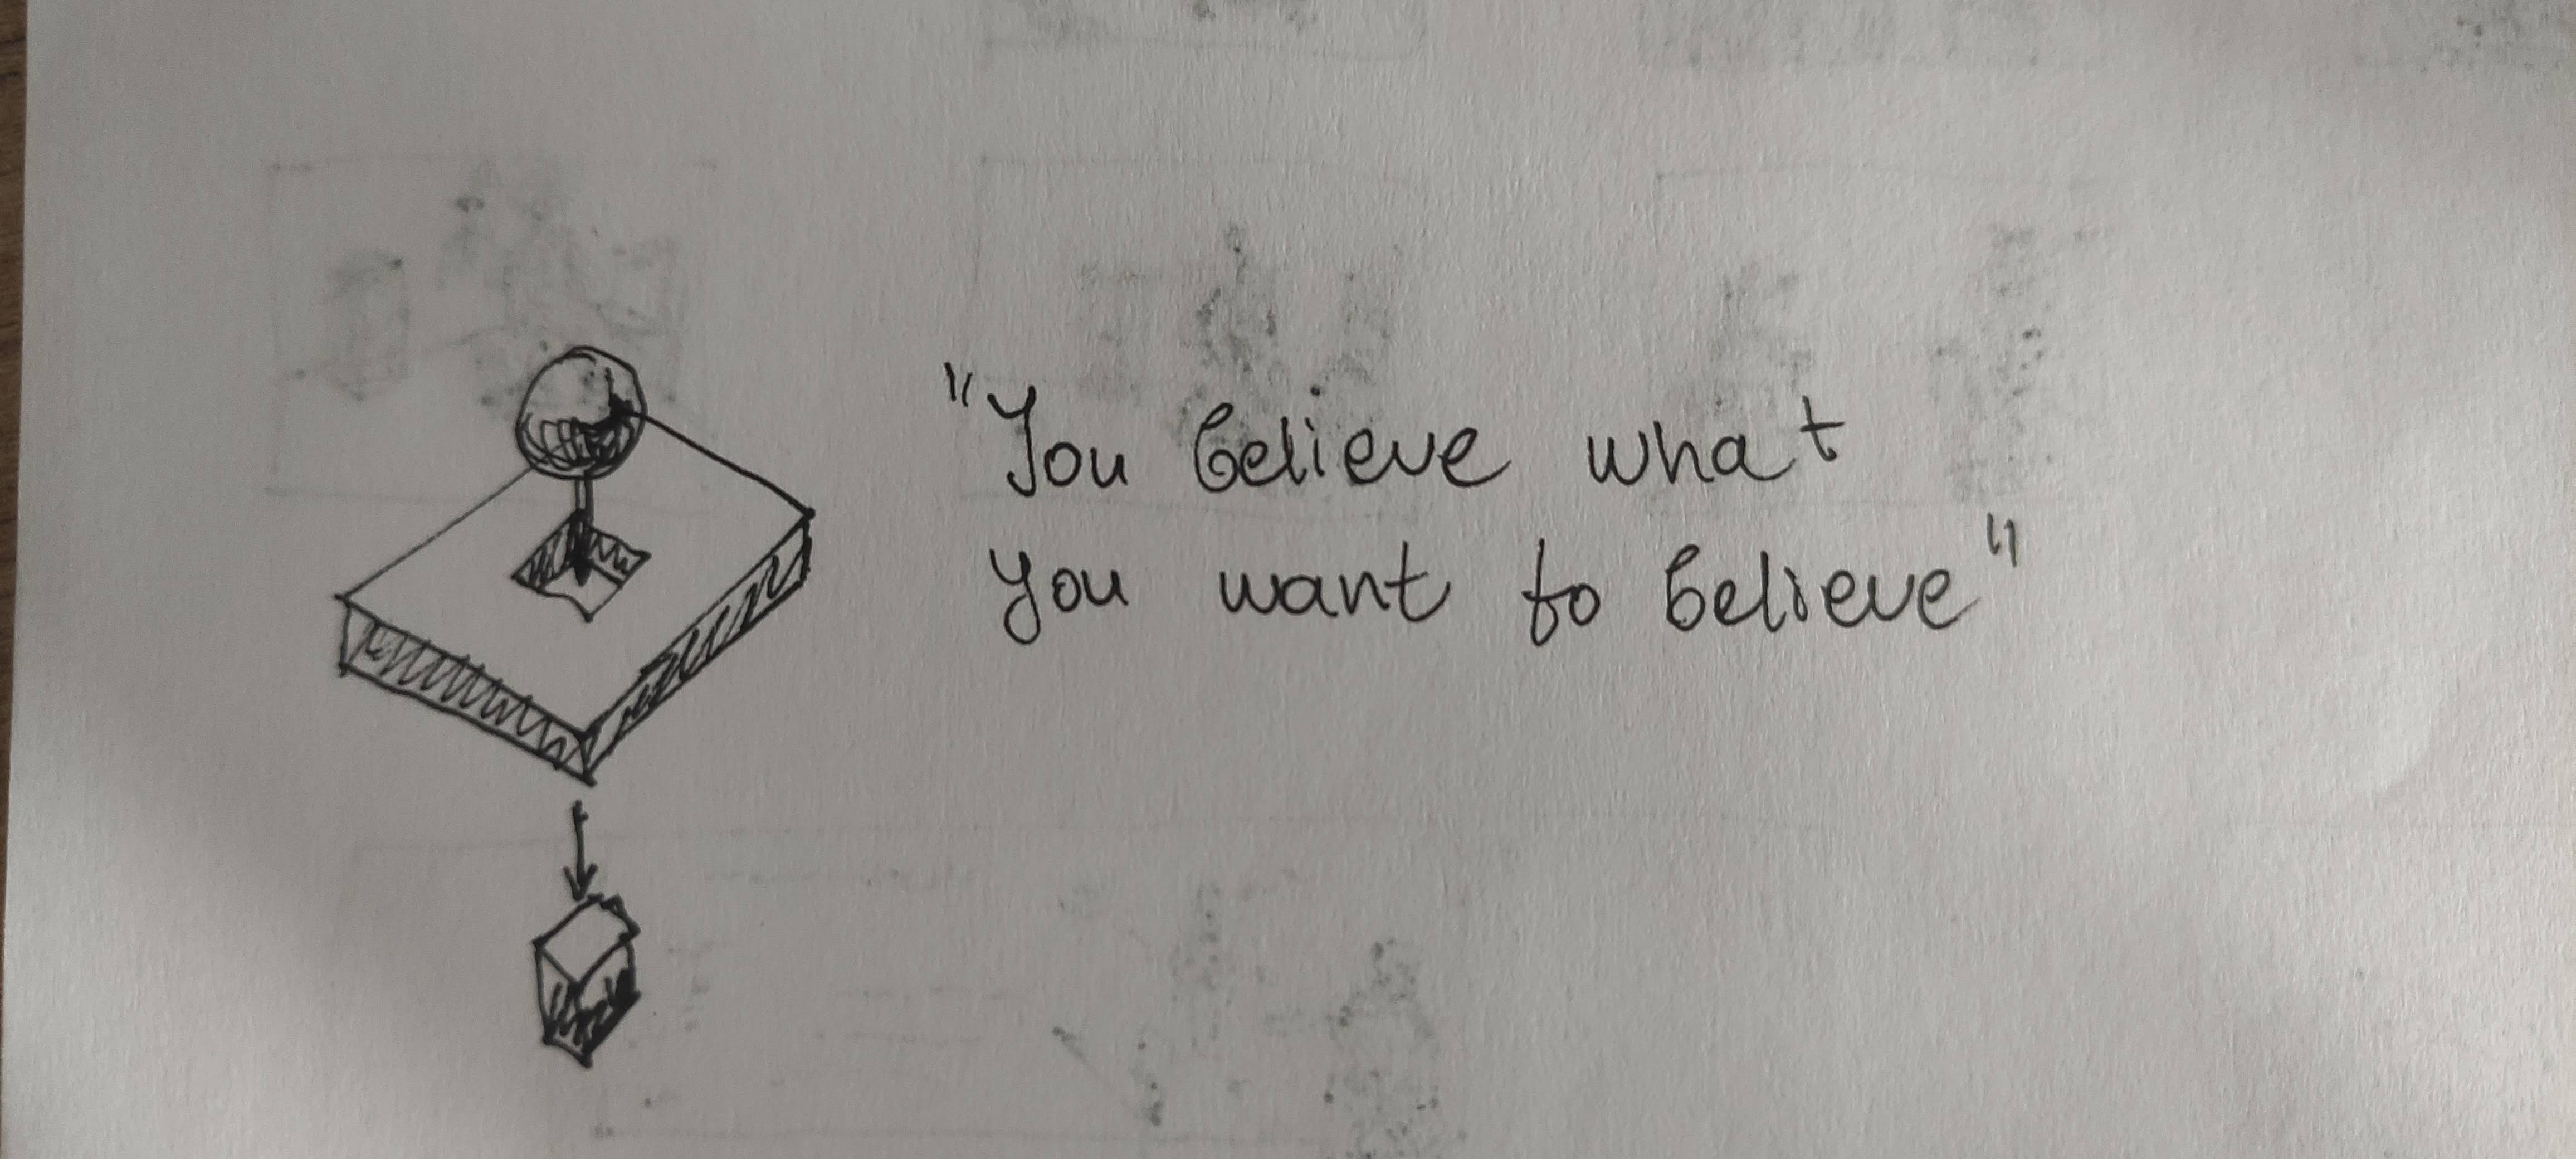 "You believe what
you want to believe"